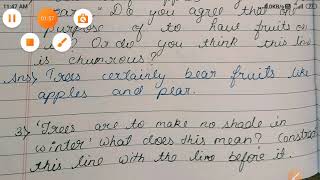 11:47 AM
0.00KB/s
01:57
bear" Do you agree that the
purpose of to haut fruits on
? Or do you think this line
is chumrous?
Ans) Trees certainly bear fruits like
apples and pear.
3) 'Trees are to make no shade in
winter' what does this mean? (constrast
this line with the line before it.